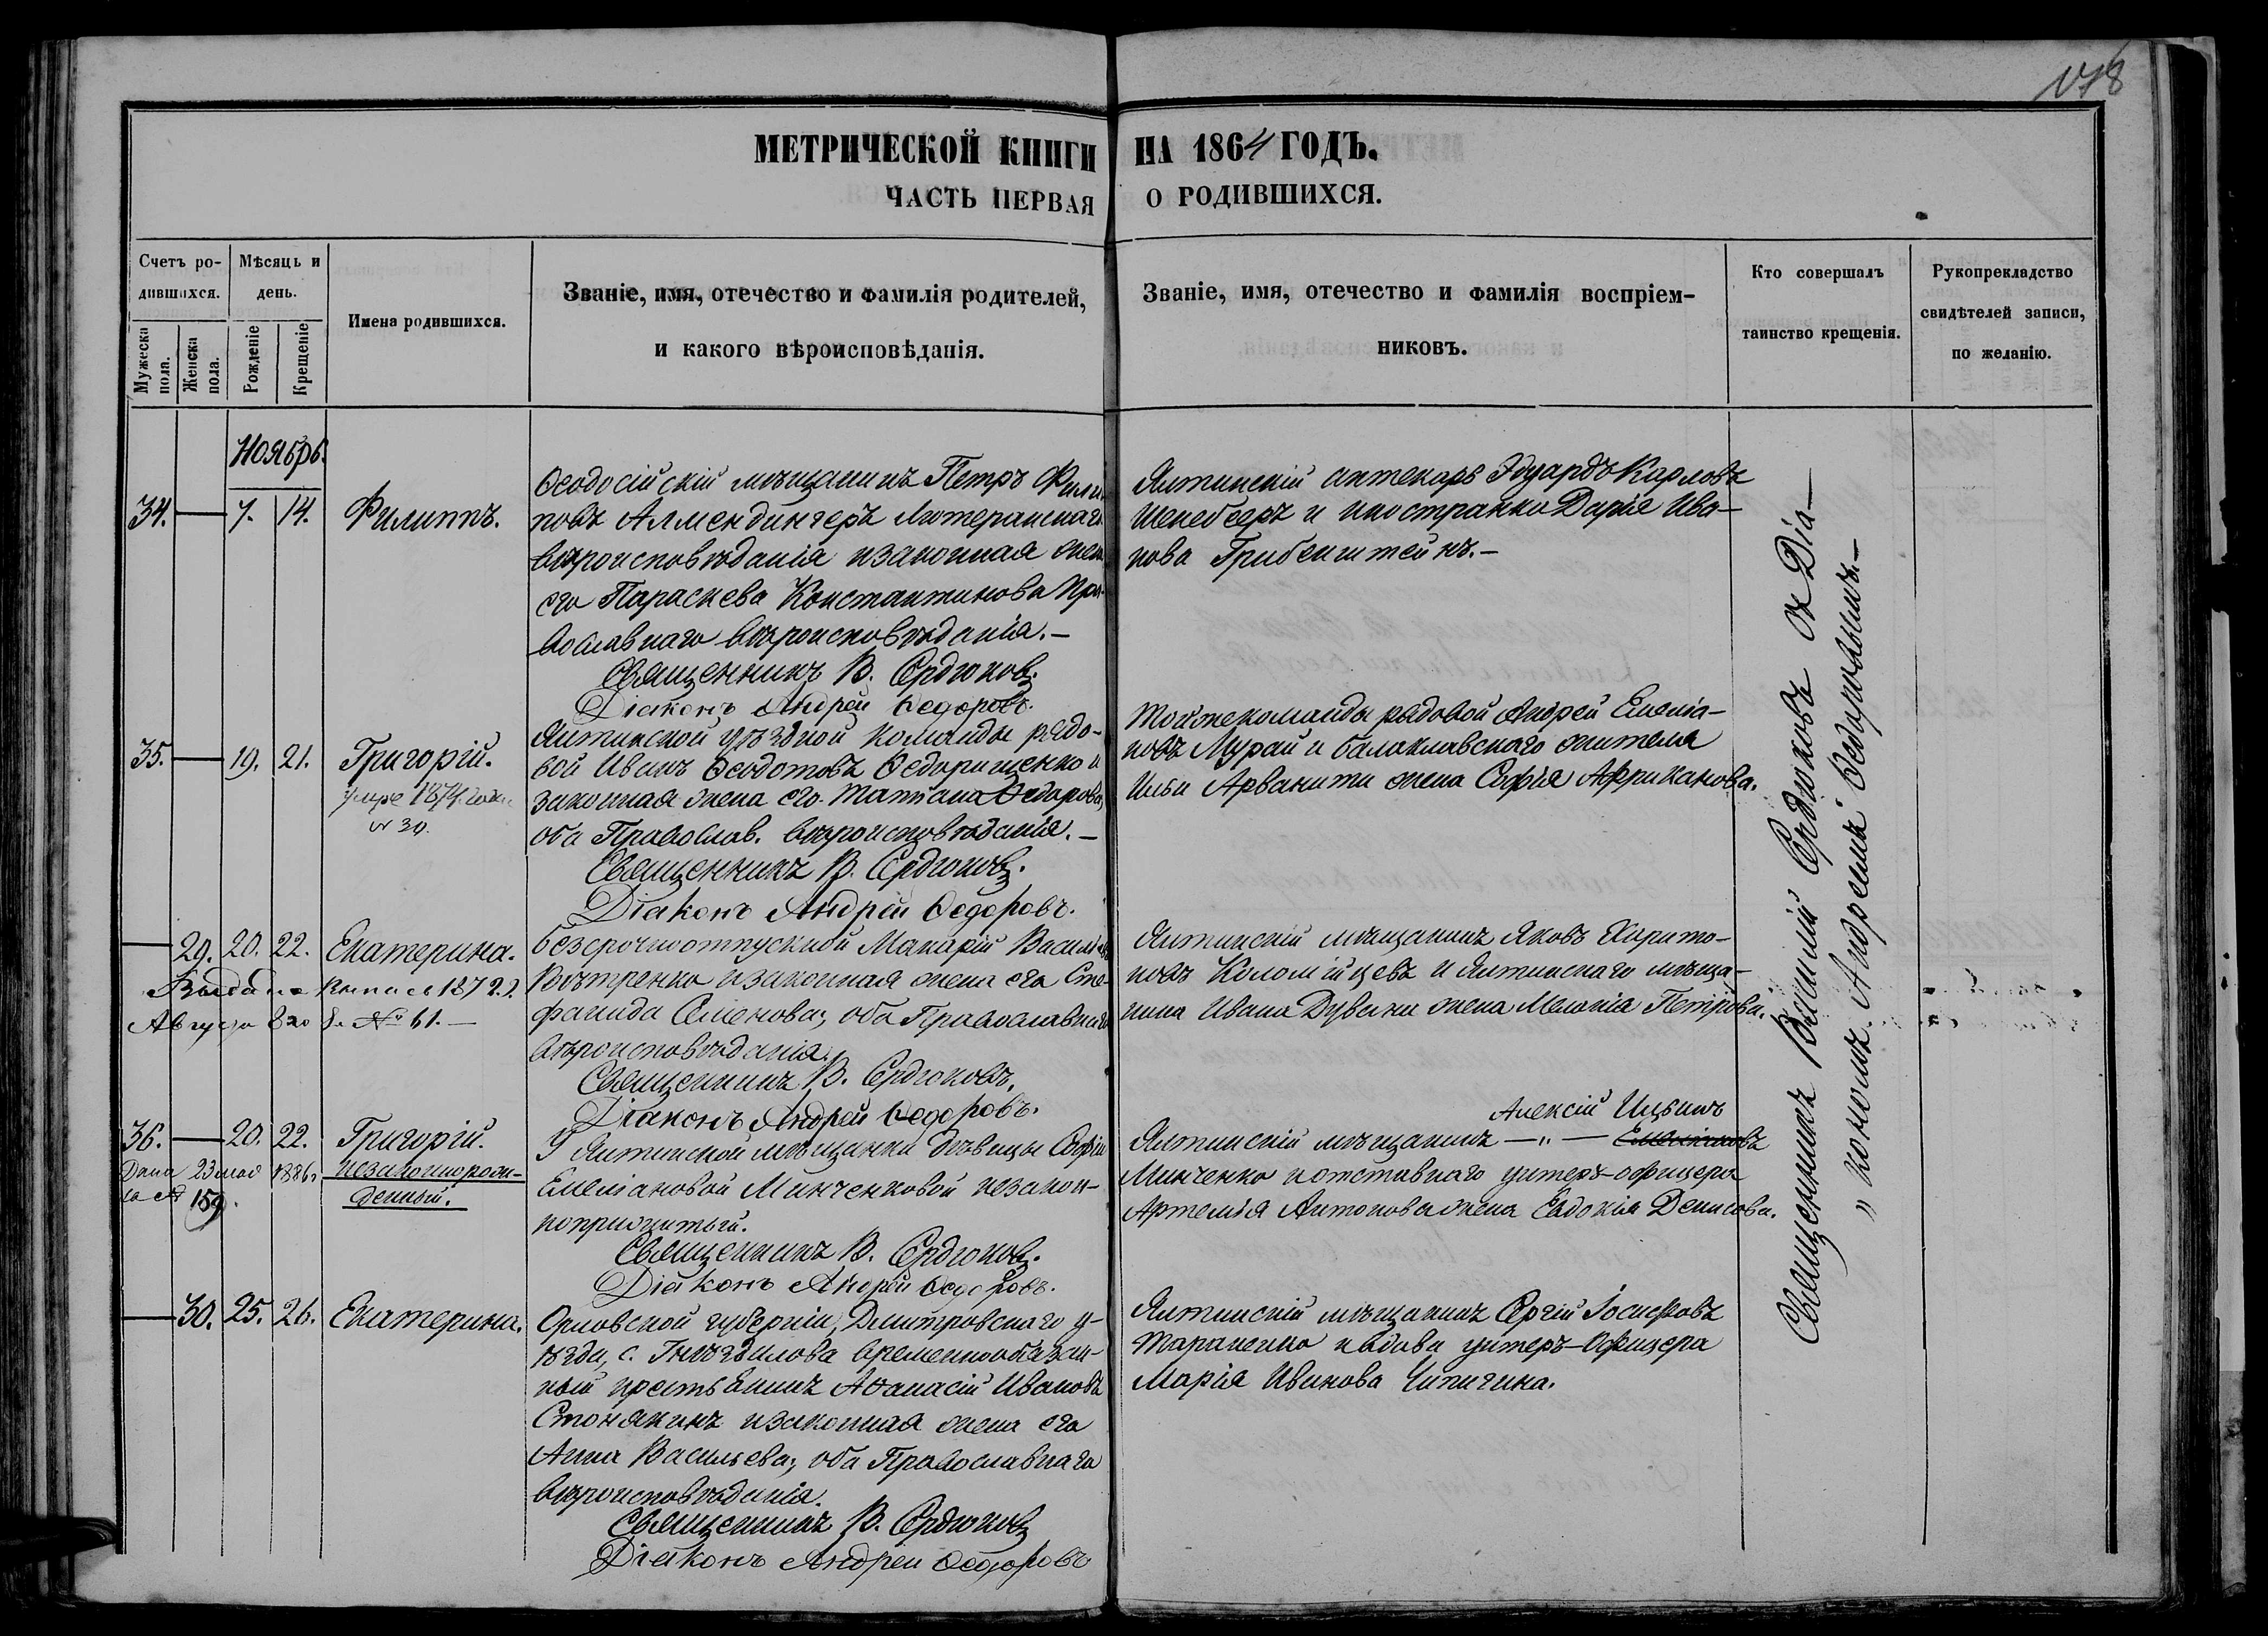 178
МЕТРИЧЕСКОЙ КНИГИ НА 1864 ГОДЪ.
ЧАСТЬ ПЕРВАЯ О РОДИВШИХСЯ.
Счетъ родившихся.
Мужеска пола.
Женска пола.
Мѣсяць и день.
Рожденіе
Крещеніе
Имена родившихся.
Званіе, имя, отечество и фамилія родителей,
и какого вѣроисповѣданія.
Званіе, имя, отечество и фамилія воспріем-
никовъ.
Кто совершалъ
таинство крещенія.
Рукоприкладство
свидѣтелей записи,
по желанію.
Ноябрь.
34. — 7. 14. Филиппъ.
Ѳеодосійскій мѣщанинъ Петръ Филип
повъ Алмендингеръ Лютеранскаго
вѣроисповѣданія и законная жена
его Параскева Константинова Пра-
вославнаго вѣроисповѣданія.—
Священникъ В. Сердюковъ.
Діаконъ Андрей Ѳедоровъ.
Ялтинскій аптекарь Эдуардъ Карловъ
и иностранка Дарія Ива-
нова Грибенштейнъ.—
35. — 19. 21. Григорій.
умре 1874 года
№ 30.
Ялтинской уѣздной команды рядо-
вой Иванъ Ѳеодотовъ Ѳедорищенко и
законная жена его Татіана Ѳедорова,
оба Православ. вѣроисповѣданія.—
Священникъ В. Сердюковъ.
Діаконъ Андрей Ѳедоровъ.
Той же команды рядовой Андрей Емеліа-
новъ Мурай и балаклавскаго жителя
Ильи Арванити жена Софія Африканова.
— 29. 20. 22. Екатерина.
Выдана выпись 1872 г.
Августа 8 № 61.—
Безсрочноотпускной Макарій Васильевъ
Вѣтренко и законная жена его Сте-
фанида Семенова, оба Православнаго
вѣроисповѣданія.
Священникъ В. Сердюковъ.
Діаконъ Андрей Ѳедоровъ.
Ялтинскій мѣщанинъ Яковъ Харито-
новъ Коломійцевъ и Ялтинскаго мѣща-
нина Ивана жена Меланія Петрова.
36. — 20. 22. Григорій.
незаконнорож-
денный.
Дана 23 мая 1886 г
за № 159.
У Ялтинской мѣщанки дѣвицы Софіи
Емеліановой Минченковой незакон-
ноприжитый.
Священникъ В. Сердюковъ.
Діаконъ Андрей Ѳедоровъ.
Алексій
Ялтинскій мѣщанинъ —„— Емеліановъ
Минченко и отставнаго унтеръ-офицера
Артемія Антонова жена Евдокія Денисова.
— 30. 25. 26. Екатерина.
Орловской губерніи, Дмитровскаго у-
ѣзда, с. Гнѣздилова временнообязан-
ный крестьянинъ Аѳанасій Ивановъ
Стонякинъ и законная жена его
Анна Васильева, оба Православнаго
вѣроисповѣданія.
Священникъ В. Сердюковъ
Діаконъ Андрей Ѳедоровъ
Ялтинскій мѣщанинъ Сергій Іосифовъ
Тараненко и вдова унтеръ-офицера
Марія Иванова Чипигина.
Священникъ Василій Сердюковъ съ Діа—
„ кономъ Андреемъ Ѳедоровымъ.—